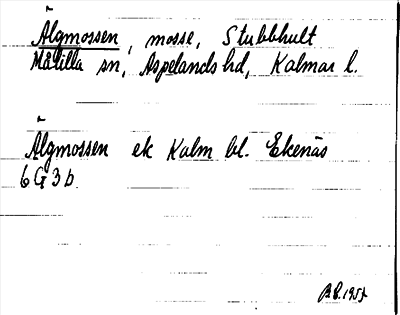 Älgmossen, mosse, Stubbhult
Målilla sn, Aspelands hd, Kalmar l.
Älgmossen ek Kalm bl. Ekenäs
6 G 3 b